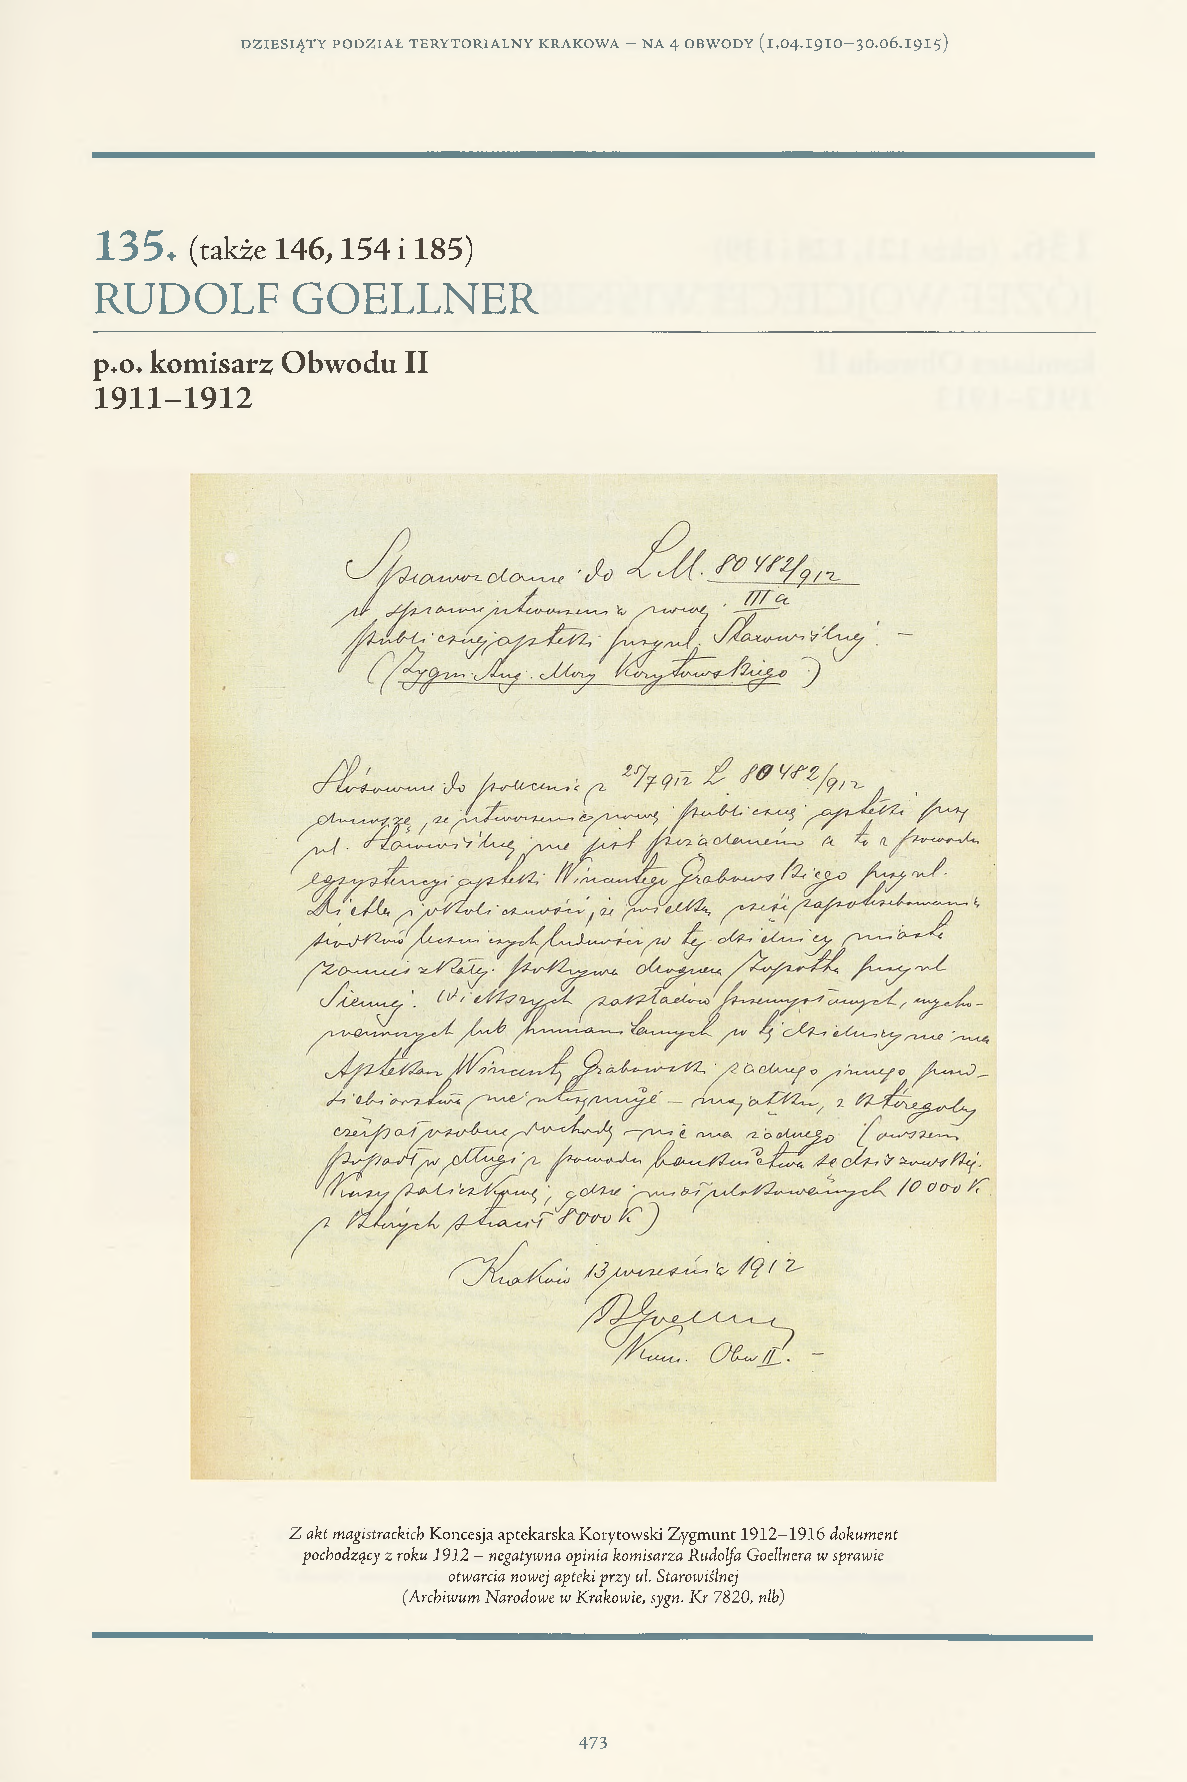 DZIESIĄTY PODZIAŁ TERYTORIALNY KRAKOWA – NA 4 OBWODY (1.04.1910–30.06.1915)
135. (także 146, 154 i 185)
RUDOLF GOELLNER
p.o. komisarz Obwodu II
1911–1912
Sprawozdanie do L.M. 80482/912
IIIa
w sprawie utworzenia nowej
publicznej apteki przy ul. Starowiślnej. –
(Zygm. Aug. Mory Korytowskiego)
Stósownie do polecenia z 25/7 912 L 80482/912
donoszę, że utworzenie nowej publicznej apteki przy
ul. Starowiślnej nie jest pożądanem a to z powodu
egzystencyi apteki Wincentego Grabowskiego przy ul.
Dietla i okoliczności, że wielką część zapotrzebowania
środków leczniczych ludności w tej dzielnicy miasta
zamieszkałej pokrywa droguerya Zopotha przy ul
Siennej. Większych zakładów przemysłowych, wycho-
wawczych lub humanitarnych w tej dzielnicy nie ma
Aptekarz Wincenty Grabowski żadnego innego przed-
siebiorstwa nie utrzymuje – majątku, z któregoby
czerpał osobne dochody – nie ma żadnego (owszem
popadł w długi z powodu bankructwa sędziszowskiej
Kasy zaliczkowej, gdzie miał ulokowanych 10000 K
z których stracił 8000 K)
Kraków 13 września 1912
RGoellner
Kom. Obw II. –
Z akt magistrackich Koncesja aptekarska Korytowski Zygmunt 1912–1916 dokument
pochodzący z roku 1912 – negatywna opinia komisarza Rudolfa Goellnera w sprawie
otwarcia nowej apteki przy ul. Starowiślnej
(Archiwum Narodowe w Krakowie, sygn. Kr 7820, nlb)
473